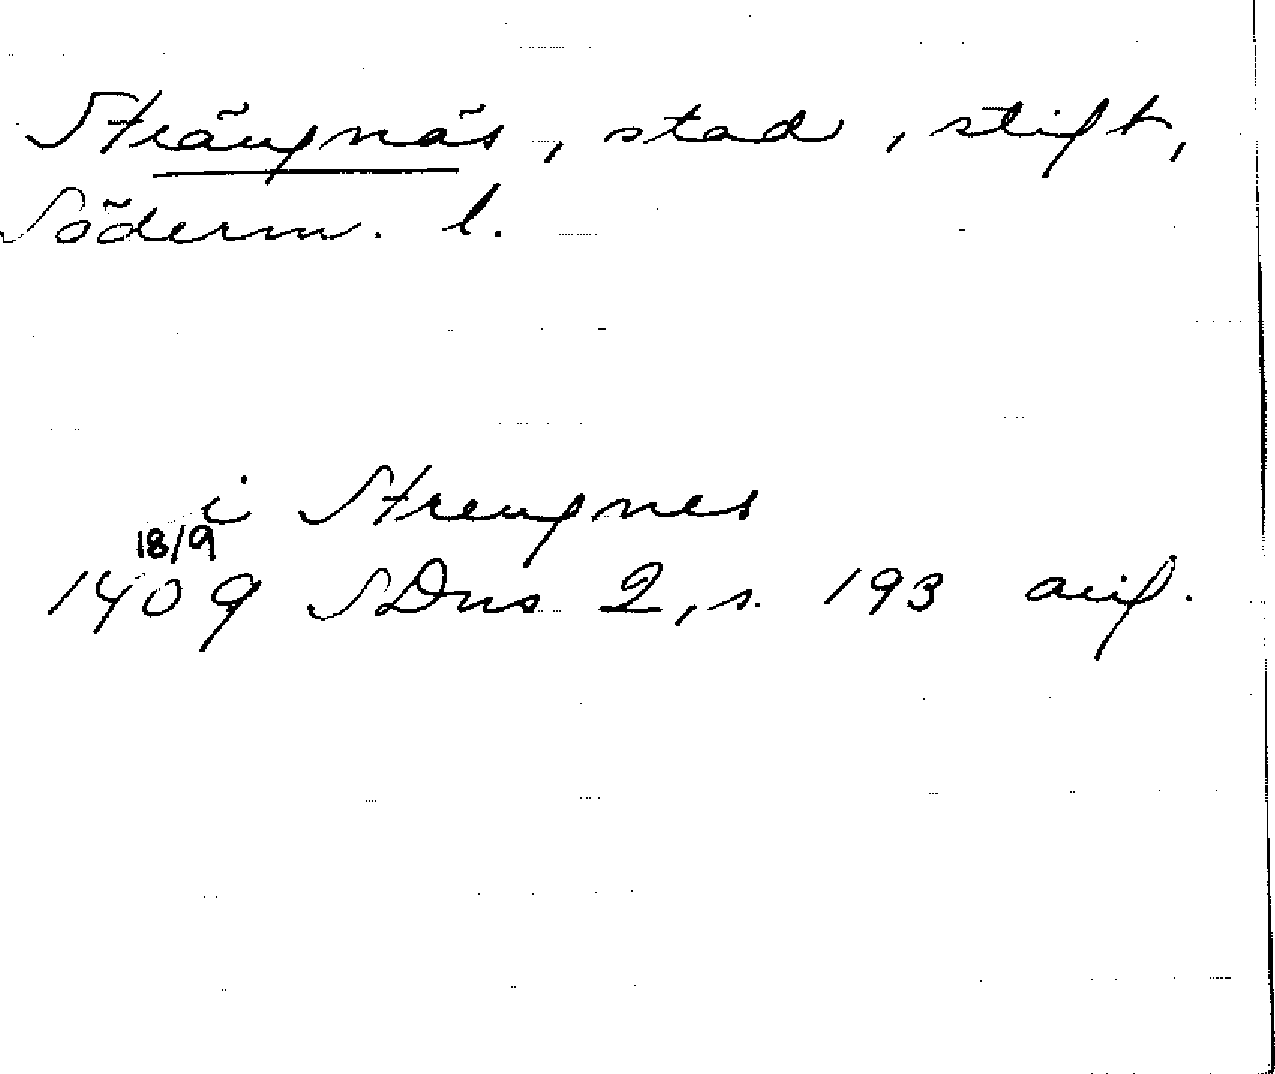 Strängnäs, stad, stift,
Söderm. l.
i Strengnes
18/9
1409 SDns 2, s. 193 avsk.